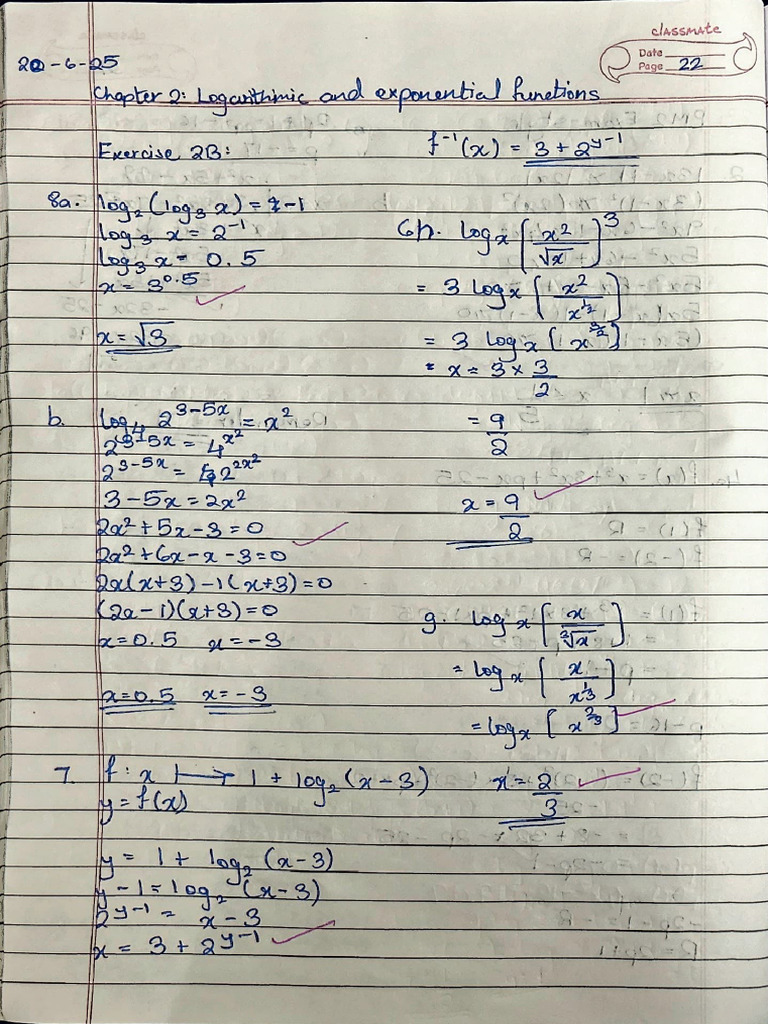 classmate
Date
Page 22
20-6-25
Chapter 2: Logarithmic and exponential functions
Exercise 2B:
8a. log₂(log₃ x) = -1
log₃ x = 2⁻¹
log₃ x = 0.5
x = 3^0.5
x = √3
b. log₄ 2^(3-5x) = x²
2^(3-5x) = 4^(x²)
2^(3-5x) = 2^(2x²)
3-5x = 2x²
2x² + 5x - 3 = 0
2x² + 6x - x - 3 = 0
2x(x+3) - 1(x+3) = 0
(2x-1)(x+3) = 0
x = 0.5 x = -3
x = 0.5 x = -3
7. f : x ↦ 1 + log₂(x-3)
y = f(x)
y = 1 + log₂(x-3)
y-1 = log₂(x-3)
2^(y-1) = x-3
x = 3 + 2^(y-1)
f⁻¹(x) = 3 + 2^(y-1)
6h. log_x [x²/√x]³
= 3 log_x [x²/x^(1/2)]
= 3 log_x [x^(3/2)]
= x = 3 × 3/2
= 9/2
x = 9/2
g. log_x [x/∛x]
= log_x [x/x^(1/3)]
= log_x [x^(2/3)]
x = 2/3